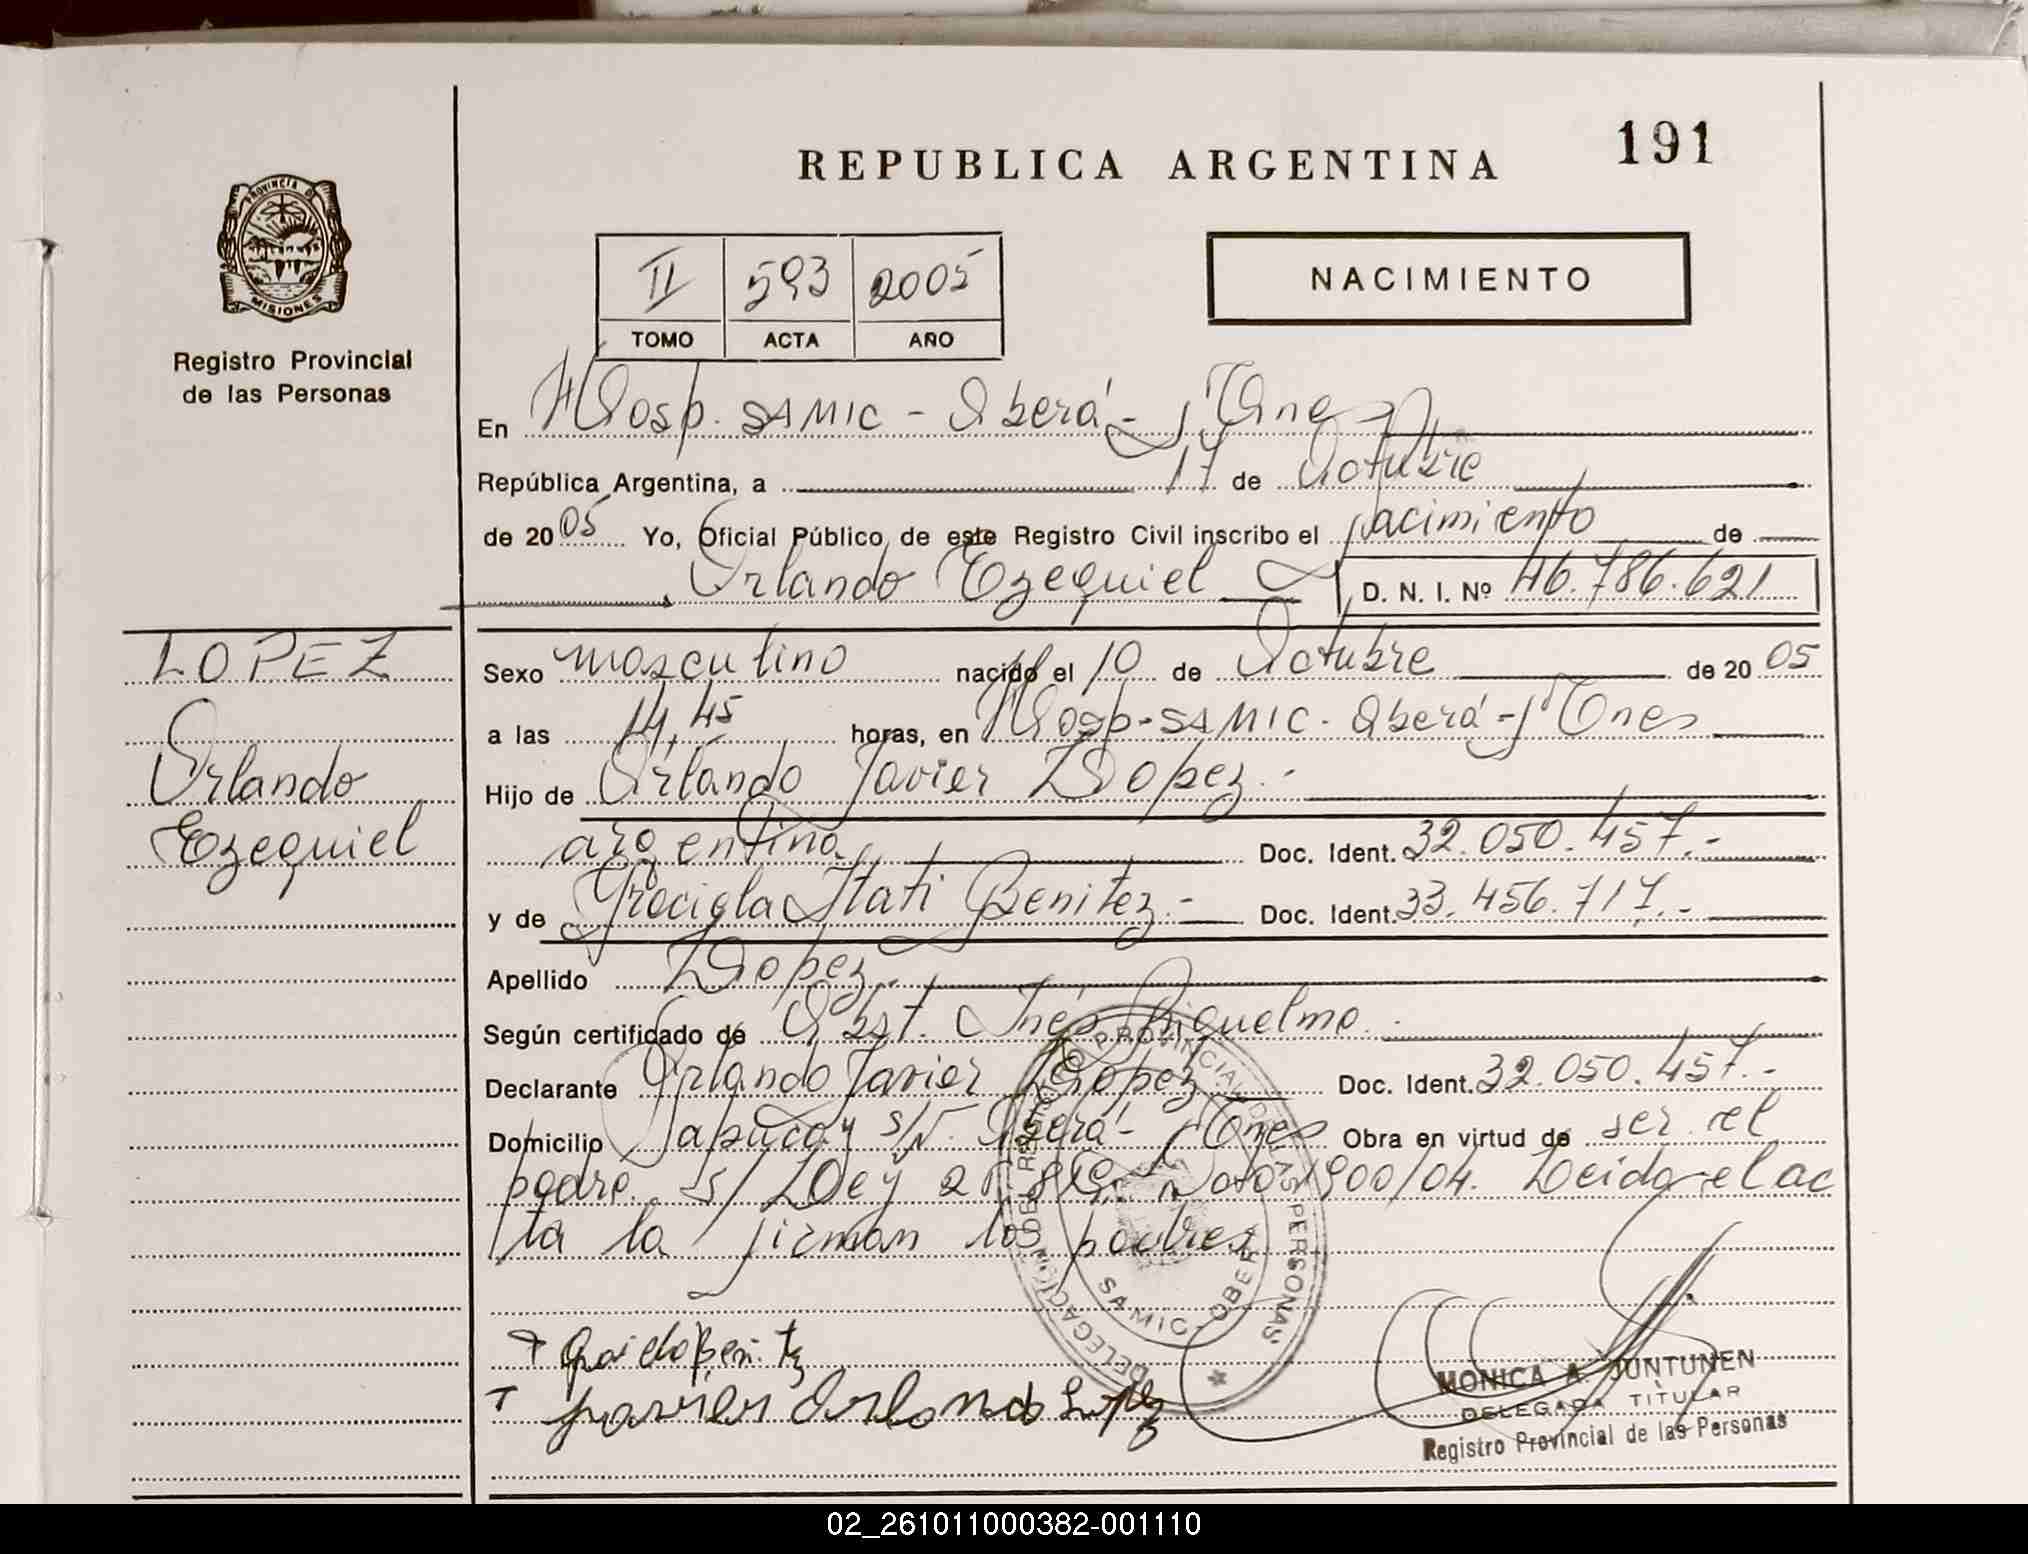 191
REPUBLICA ARGENTINA
PROVINCIA DE
MISIONES
Registro Provincial
de las Personas
II 593 2005
TOMO ACTA AÑO
NACIMIENTO
En Hosp. SAMIC - Oberá - Mnes
República Argentina, a 17 de Octubre
de 2005 Yo, Oficial Público de este Registro Civil inscribo el nacimiento de
Orlando Ezequiel D. N. I. Nº 46.786.621
LOPEZ
Orlando
Ezequiel
Sexo masculino nacido el 10 de Octubre de 2005
a las 14,45 horas, en Hosp-SAMIC-Oberá-Mnes
Hijo de Orlando Javier Lopez.-
argentina Doc. Ident. 32.050.457.-
y de Graciela Itati Benitez.- Doc. Ident. 33.456.717.-
Apellido Lopez.-
Según certificado de Obst. Inés Riquelme.
Declarante Orlando Javier Lopez Doc. Ident. 32.050.457.-
Domicilio Tapucay s/N. Oberá - Mnes Obra en virtud de ser el
padre. s/Ley Leida el ac
ta la firman los padres
DELEGACION DE REGISTRO PROVINCIAL DE LAS PERSONAS
SAMIC-OBERA
Benitz
Javier Orlando Lopez
MONICA A. JUNTUNEN
DELEGADA TITULAR
Registro Provincial de las Personas
02_261011000382-001110